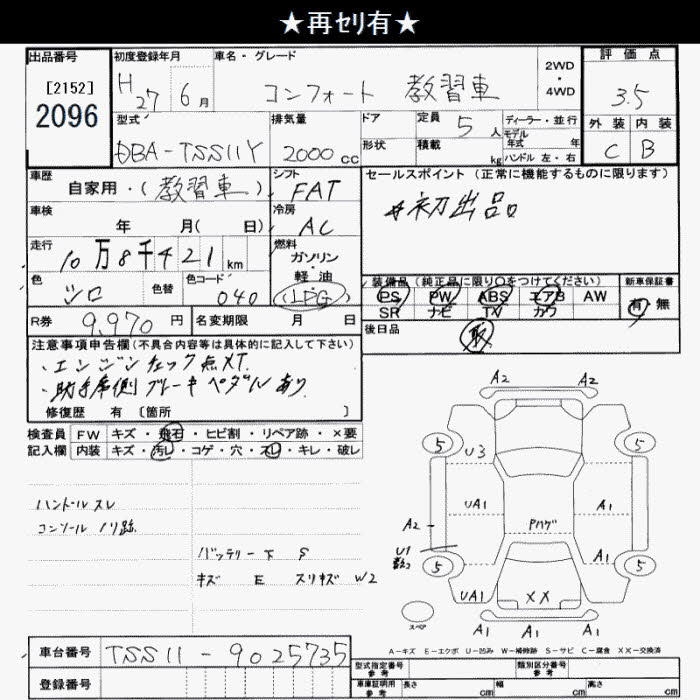 ★再ｾﾘ有★
出品番号 初度登録年月 車名・グレード 2WD・4WD 評価点
[2152]
2096
H27 6月 コンフォート 教習車 3.5
型式 排気量 ドア 定員 5人 ディーラー・並行 外装 内装
モデル年式 年
DBA-TSS11Y 2000cc 形状 積載 kg ハンドル 左・右 C B
車歴 シフト セールスポイント (正常に機能するものに限ります)
自家用・(教習車) FAT
#初出品
車検 冷房
年 月( 日) AC
走行 燃料
10万8千421km ガソリン・軽油
色 色替 色コード 装備品 (純正品に限り○をつけてください) 新車保証書
シロ 040 (LPG) PS PW ABS エアB AW 有・無
SR ナビ TV カワ
R券 9,970円 名変期限 月 日 後日品 取
注意事項申告欄(不具合内容等は具体的に記入して下さい)
・エンジンチェック点灯.
・助手席側ブレーキペダルあり
修復歴 有 [箇所 ]
検査員 FW キズ・飛石・ヒビ割・リペア跡・×要
記入欄 内装 キズ・汚レ・コゲ・穴・スレ・キレ・破レ
A2 A2
5 5
U3
ハンドルスレ
コンソールノリ跡
UA1 A1
A2 Pハゲ
バッテリー下 S
キズ E スリキズ W2
U1
A1
5 5
UA1 XX A1
スペア
A1 A1 A1
A-キズ E-エクボ U-凹み W-補修跡 S-サビ C-腐食 XX-交換済
車台番号 TSS11-9025735
型式指定番号 参考 類別区分番号 参考
登録番号 車庫証明用 参考 長さ cm 幅 cm 高さ cm